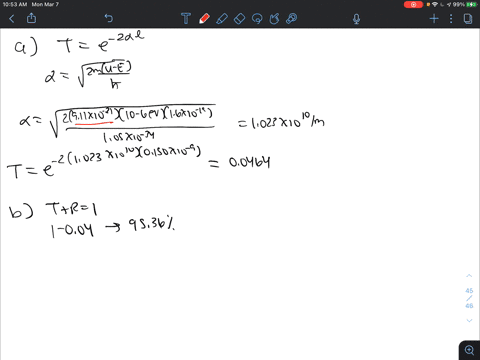 10:53 AM Mon Mar 7
99%
a) T = e^-2αl
α = √2m(U-E) / ħ
α = √2(9.11×10^-31)(10-6eV)(1.6×10^-19) / 1.05×10^-34 = 1.023×10^10/m
T = e^-2(1.023×10^10)(0.150×10^-9) = 0.0464
b) T+R=1
1-0.04 → 95.36%
45
/
46